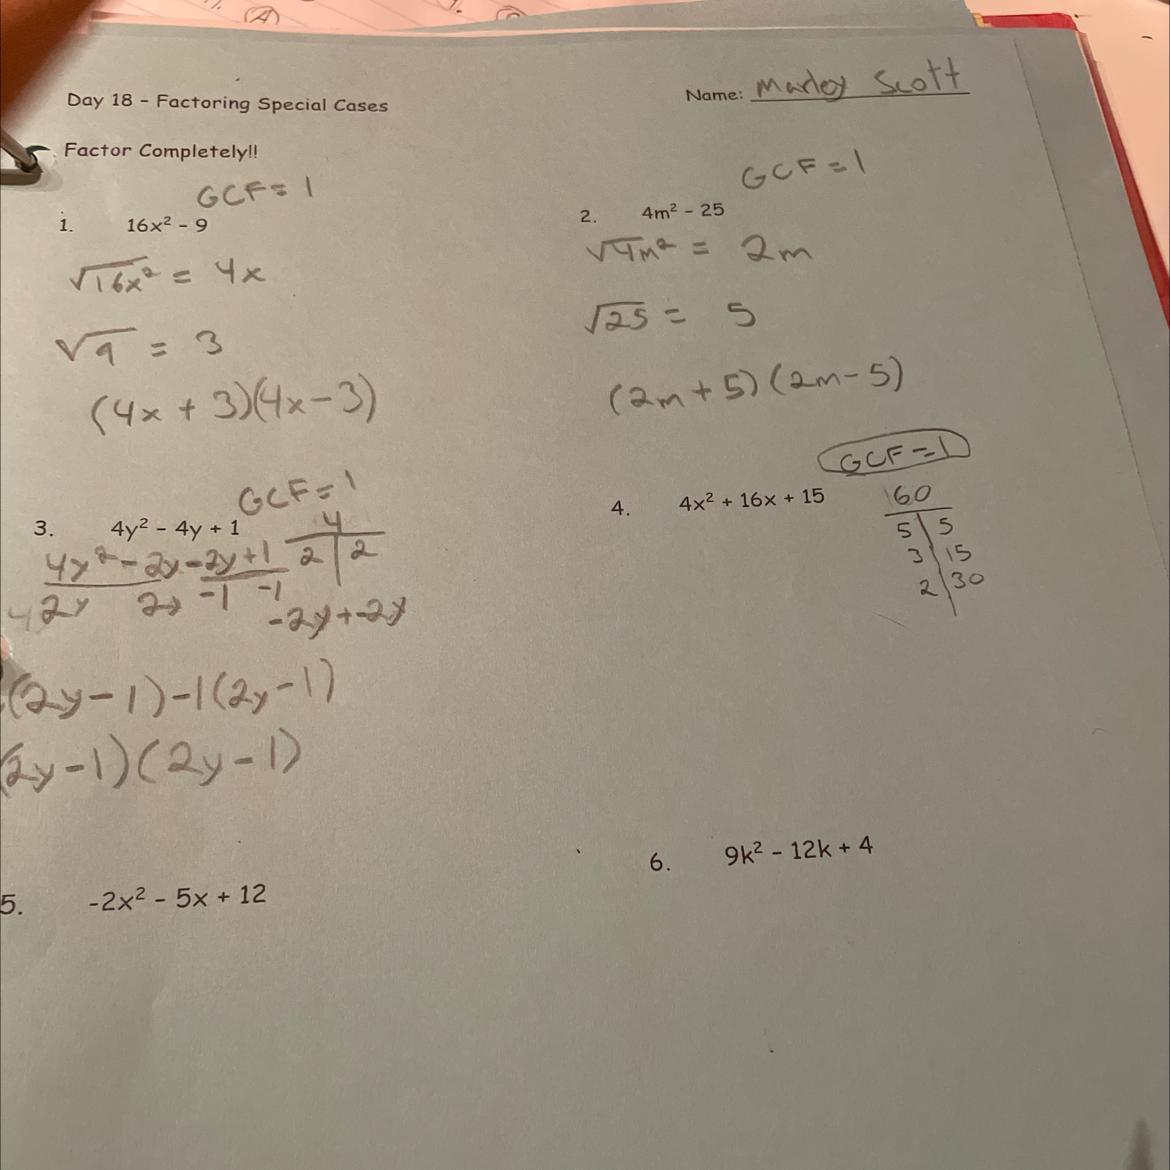 Day 18 - Factoring Special Cases
Name: Marley Scott
Factor Completely!!
GCF = 1
1. 16x² - 9
√16x² = 4x
√9 = 3
(4x + 3)(4x - 3)
GCF = 1
2. 4m² - 25
√4m² = 2m
√25 = 5
(2m + 5) (2m - 5)
GCF = 1
3. 4y² - 4y + 1
4
2 | 2
4y² - 2y - 2y + 1
2y 2y -1 -1
-2y + -2y
(2y - 1) - 1(2y - 1)
(2y - 1) (2y - 1)
GCF = 1
4. 4x² + 16x + 15
60
5 | 5
3 | 15
2 | 30
5. -2x² - 5x + 12
6. 9k² - 12k + 4